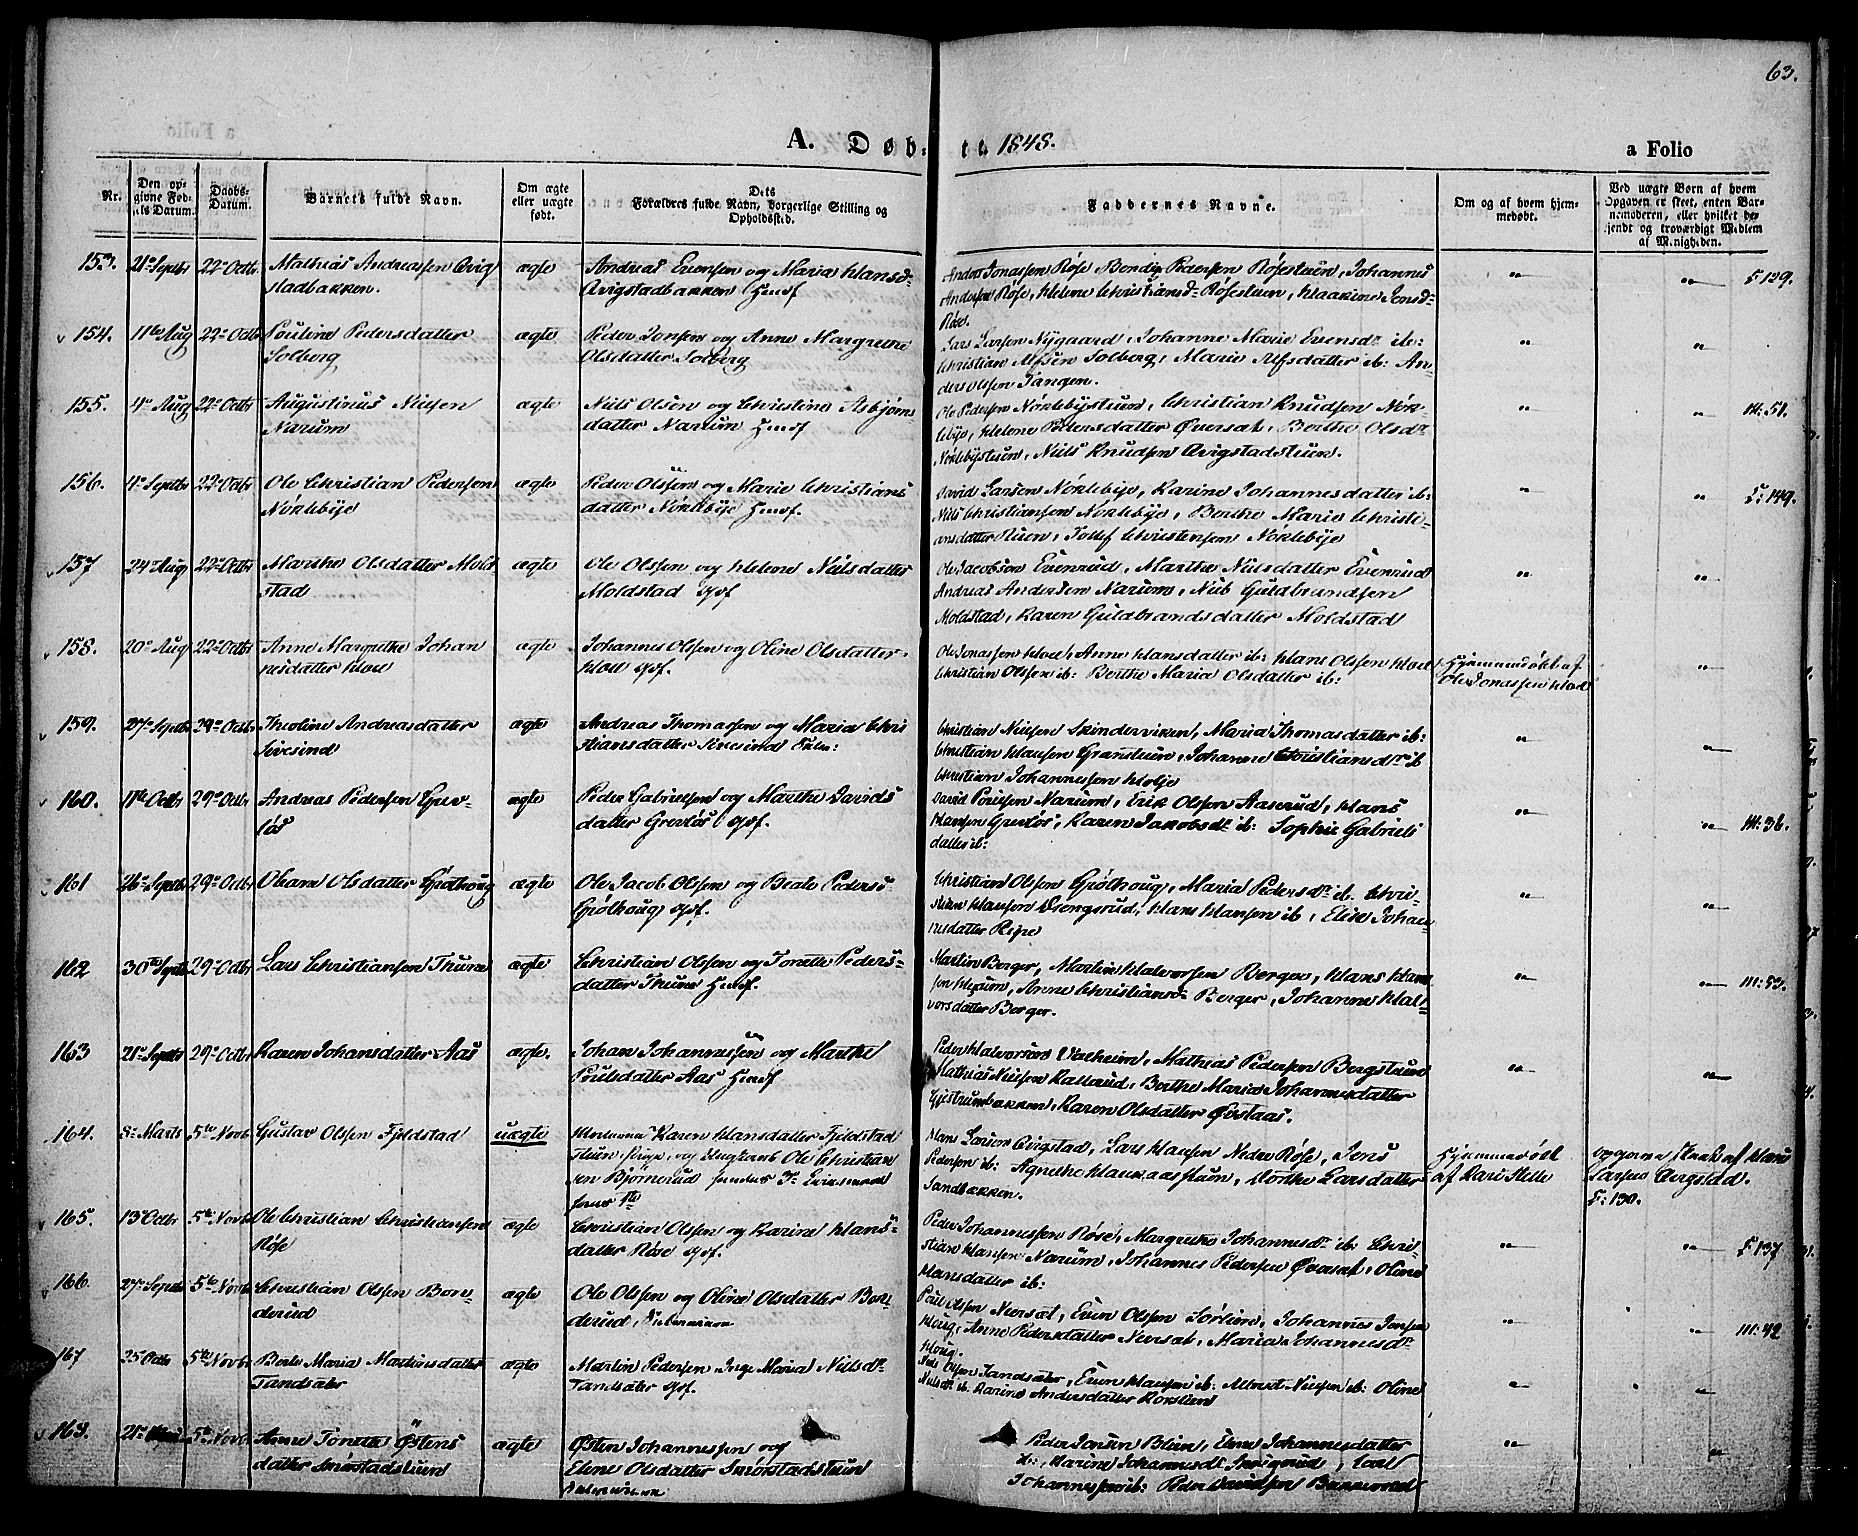 63.
A. Døb- te. 1848.
a Folio
Nr.
Den op-
givne Fød-
sels Datum.
Daabs-
Datum.
Barnets fulde Navn.
Om ægte
eller uægte
født.
Dets
Forældres fulde Navn, borgerlige Stilling og
Opholdssted.
Faddernes Navne.
Om og af hvem hjem-
medøbt.
Ved uægte Børn af hvem
Opgaven er skeet, enten Bar-
nemoderen, eller hvilket be-
kjendt og troværdigt Medlem
af Menigheden.
153. 21de Septbr 22de Octbr Mathias Andreassen Qvig ægte Andreas Evensen og Maria Hansd.
stadbakken. Qvigstadbakken Huusf
Anders Jonassen Røse, Bendix Pedersen Røsestuen, Johannes
Andersen Røse, Helene Christiansd. Røsestuen, Haakine Jensd.
Røse.
F: 129.
154. 11te Aug 22de Octbr Pouline Pedersdatter ægte Peder Jonsen og Anne Margrethe
Solberg Olsdatter Solberg
Lars Larsen Nygaard, Johanne Marie Evensdr ib:
Christian Alfsen Solberg, Marie Alfsdatter ib: An-
ders Olsen Tangen.
155. 4de Aug 22de Octbr Augustinus Nielsen ægte Niels Olsen og Christine Asbjørns
Narum datter Narum Huusf
Ole Pedersen Nøklebystuen, Christian Knudsen Nøk-
lebye, Helene Pedersdatter Øversæt, Berthe Olsdr
Nøklebystuen, Niels Knudsen Qvigstadstuen.
M: 51.
156. 4de Septbr 22de Octbr Ole Christian Pedersen ægte Peder Olssen og Marie Christians
Nøklebye datter Nøklebye Huusf.
David Larsen Nøklebye, Karine Johannesdatter ib:
Niels Christiansen Nøklebye, Berthe Marie Christi-
ansdatter Ruen, Tollef Christensen Nøklebye
F: 149.
157 24de Aug 22de Octbr Marthe Olsdatter Mold- ægte Ole Olssen og Helene Nielsdatter
stad Moldstad Gdf
Ole Jacobsen Evenrud, Marthe Nielsdatter Evenrud
Andreas Andersen Narum, Niels Guldbrandsen
Moldstad, Karen Guldbrandsdatter Moldstad
158. 20de Aug 22de Octbr Anne Margrethe Johan ægte Johannes Olssen og Oline Olsdatter
nesdatter Hoel Hoel Gdf.
Ole Jonassen Hoel, Anne Hansdatter ib: Hans Olssen Hoel
Christian Olssen ib: Berthe Maria Olsdatter ib:
Hjemmedøbt af
Ole Jonassen Hoel
159. 27de Septbr 29de Octbr Theoline Andreasdatter ægte Andreas Thomassen og Maria Chri
Sivesind stiansdatter Sivesind
Christian Nielsen Skinderviken, Maria Thomasdatter ib:
Christian Hansen Granstuen, Johanne Christiansdr ib
Christian Johannessen
160. 11te Octbr 29de Octbr Andreas Pedersen Grev- ægte Peder Gabrielsen og Marthe Davids
løs datter Grevløs Gdf.
David Povelsen Narum, Erik Olssen Aaserud, Hans
Hansen Grevløs, Karen Jakobsdr ib: Sophie Gabriels
datter ib:
M: 36.
161 26de Septbr 29de Octbr Oleane Olsdatter Gjølhoug ægte Ole Jacob Olssen og Beate Pedersd.
Gjølhoug Gdf.
Christian Olssen Gjølhoug, Maria Pedersdr ib. Chri-
stian Hansen Drengsrud, Hans Hansen ib, Elise Johan
nesdatter Reise
162 30te Septbr 29de Octbr Lars Christiansen Thune ægte Christian Olssen og Tonette Peders-
datter Thune Huusf.
Martin Berger, Martin Halvorsen Berger, Hans Han
sen, Anne Christiansd. Berger, Johanne Hal-
vorsdatter Berger.
M: 53.
163 21de Septbr 29de Octbr Karen Johansdatter Aas ægte. Johan Johannessen og Marthe
Poulsdatter Aas Huusf
Peder Halvorsen Valheim, Mathias Pedersen Bergstuen
Mathias Nielsen Kallerud, Berthe Maria Johannesdatter
Gjestrumbakken, Karen Olsdatter Øvstaas.
164. 8de Marts 5te Novbr Gustav Olsen Fjeldstad uægte Karen Hansdatter Fjeldstad
og Ungkarl Ole Christian
sen Bjørnerud
Hans Larsen Qvigstad, Lars Hansen Nedre Røse, Jens
Pedersen ib: Agnethe, Marthe Larsdatter
Sandbakken.
Hjemmedøbt
af Kari Helle
opgivne Skeet af Hans
Larsen Qvigstad.
F: 130.
165. 13de Octbr 5te Novbr Ole Christian Christiansen ægte Christian Olssen og Karine Hans-
Røse datter Røse Gdf.
Peder Johannessen Røse, Margrethe Johannesdr ib: Chris-
tian Hansen Narum, Johannes Pedersen Øversæt, Oline
Hansdatter ib:
F: 137
166. 27de Septbr 5te Novbr Christian Olssen Bon- ægte Ole Olssen og Oline Olsdatter Bon-
derud derud,
Poul Olssen Nersæt, Even Olssen Sørlien, Johannes Jonsen
Houg, Anne Pedersdatter Nersæt, Maria Johannesdr
Houg.
M: 42
167 25 Octbr 5te Novbr Berte Maria Martinsdatter ægte Martin Pedersen, Inge Maria Nielsdr
Tandsæter Tandsæter Gdf.
Niels Olsen Tandsæter, Even Hansen ib: Albret Nielsen ib: Oline
Nielsdr ib: Karine Andersdatter Rokstuen
168. 21de 5te Novbr Anne Tonette Østens ægte Østen Johannessen og
datter Smørstadstuen Elene Olsdatter Smørstadstuen
Peder Jonsen Blien, Elene Johannesdatter
ib:, Karine Johannesdr, Carl
Johannessen ib: Peder Davidsen